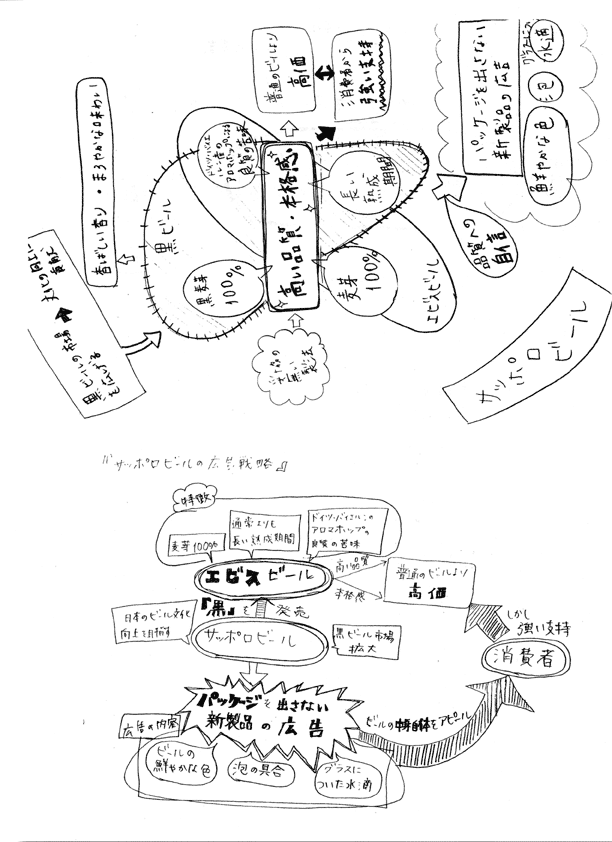 普通のビールより
高価
消費者から
強い支持
パッケージを出さない
新製品の広告
グラスについた
水滴
泡
鮮やかな色
香ばしい香り・まろやかな味わい
黒ビール
アロマホップによる
良質の苦味
長い
熟成
期間
高い品質・本格感
黒麦芽
100%
麦芽
100%
エビスビール
品質への
自信
黒ビールの市場
を広げる
文化の向上に
貢献
サッポロ
ビール
『サッポロビールの広告戦略』
特徴
麦芽100%
通常よりも
長い熟成期間
ドイツ・バイエルンの
アロマホップの
良質の苦味
エビスビール
高い品質
本格感
普通のビールより
高価
『黒』を発売
日本のビール文化
向上を目指す
サッポロビール
黒ビール市場
拡大
しかし
強い支持
消費者
パッケージを出さない
新製品の広告
広告の内容
ビールの中身自体をアピール
ビールの
鮮やかな色
泡の具合
グラスに
ついた水滴